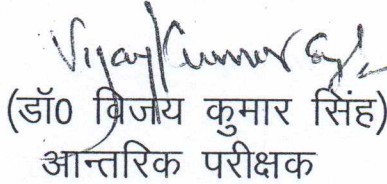 Vijay Kumar
(डॉ0 विजय कुमार सिंह)
आन्तरिक परीक्षक